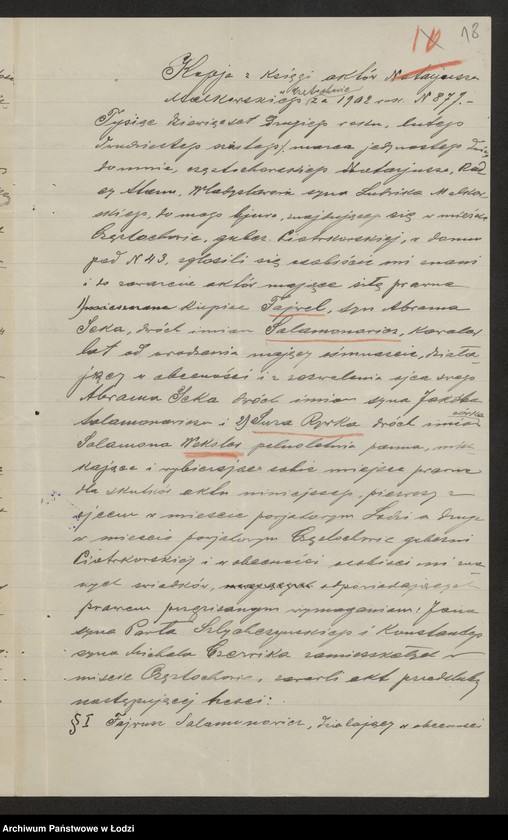 10 18
Kopja z księgi aktów Notarjusza
w Częstochowie
Małkowskiego za 1902 rok. N 879.-
Tysiąc dziewięćset drugiego roku, lutego
szóstego / marca jedynastego dnia
do mnie, częstochowskiego Notarjusza,
Władysława syna Ludwika Małkow-
skiego, do mego bjura, znajdującego się w mieście
Częstochowie, guber. Piotrkowskiej, w domu
pod N 43, zgłosili się osobiście mi znani
i do zawarcia aktów mające siłę prawną
1) kupiec Fajwel, syn Abrama
Icka, dwóch imion Salamonowicz, kawaler
lat od urodzenia mający ośmnaście, działa-
jący w obecności i z zezwolenia ojca swego
Abrama Icka dwóch imion syna Jakóba
Salamonowicza i 2) Sura Rywka dwóch imion
córka
Salamona Weksler pełnoletnia panna, miesz-
kające i wybierające sobie miejsce prawne
dla skutków aktu niniejszego, pierwszy z
ojcem w mieście powjatowym Łodzi a druga
w mieście powjatowym Częstochowie guberni
Piotrkowskiej i w obecności osobiście mi zna-
nych świadków, odpowiadających
prawem przepisanym wymaganiom: Jana
syna Pawła i Konstantego
syna Michała Czernika zamieszkałych w
mieście Częstochowie, zawarli akt przedślubny
następującej treści:
§ I Fajwel Salamonowicz, działający w obecności
Archiwum Państwowe w Łodzi